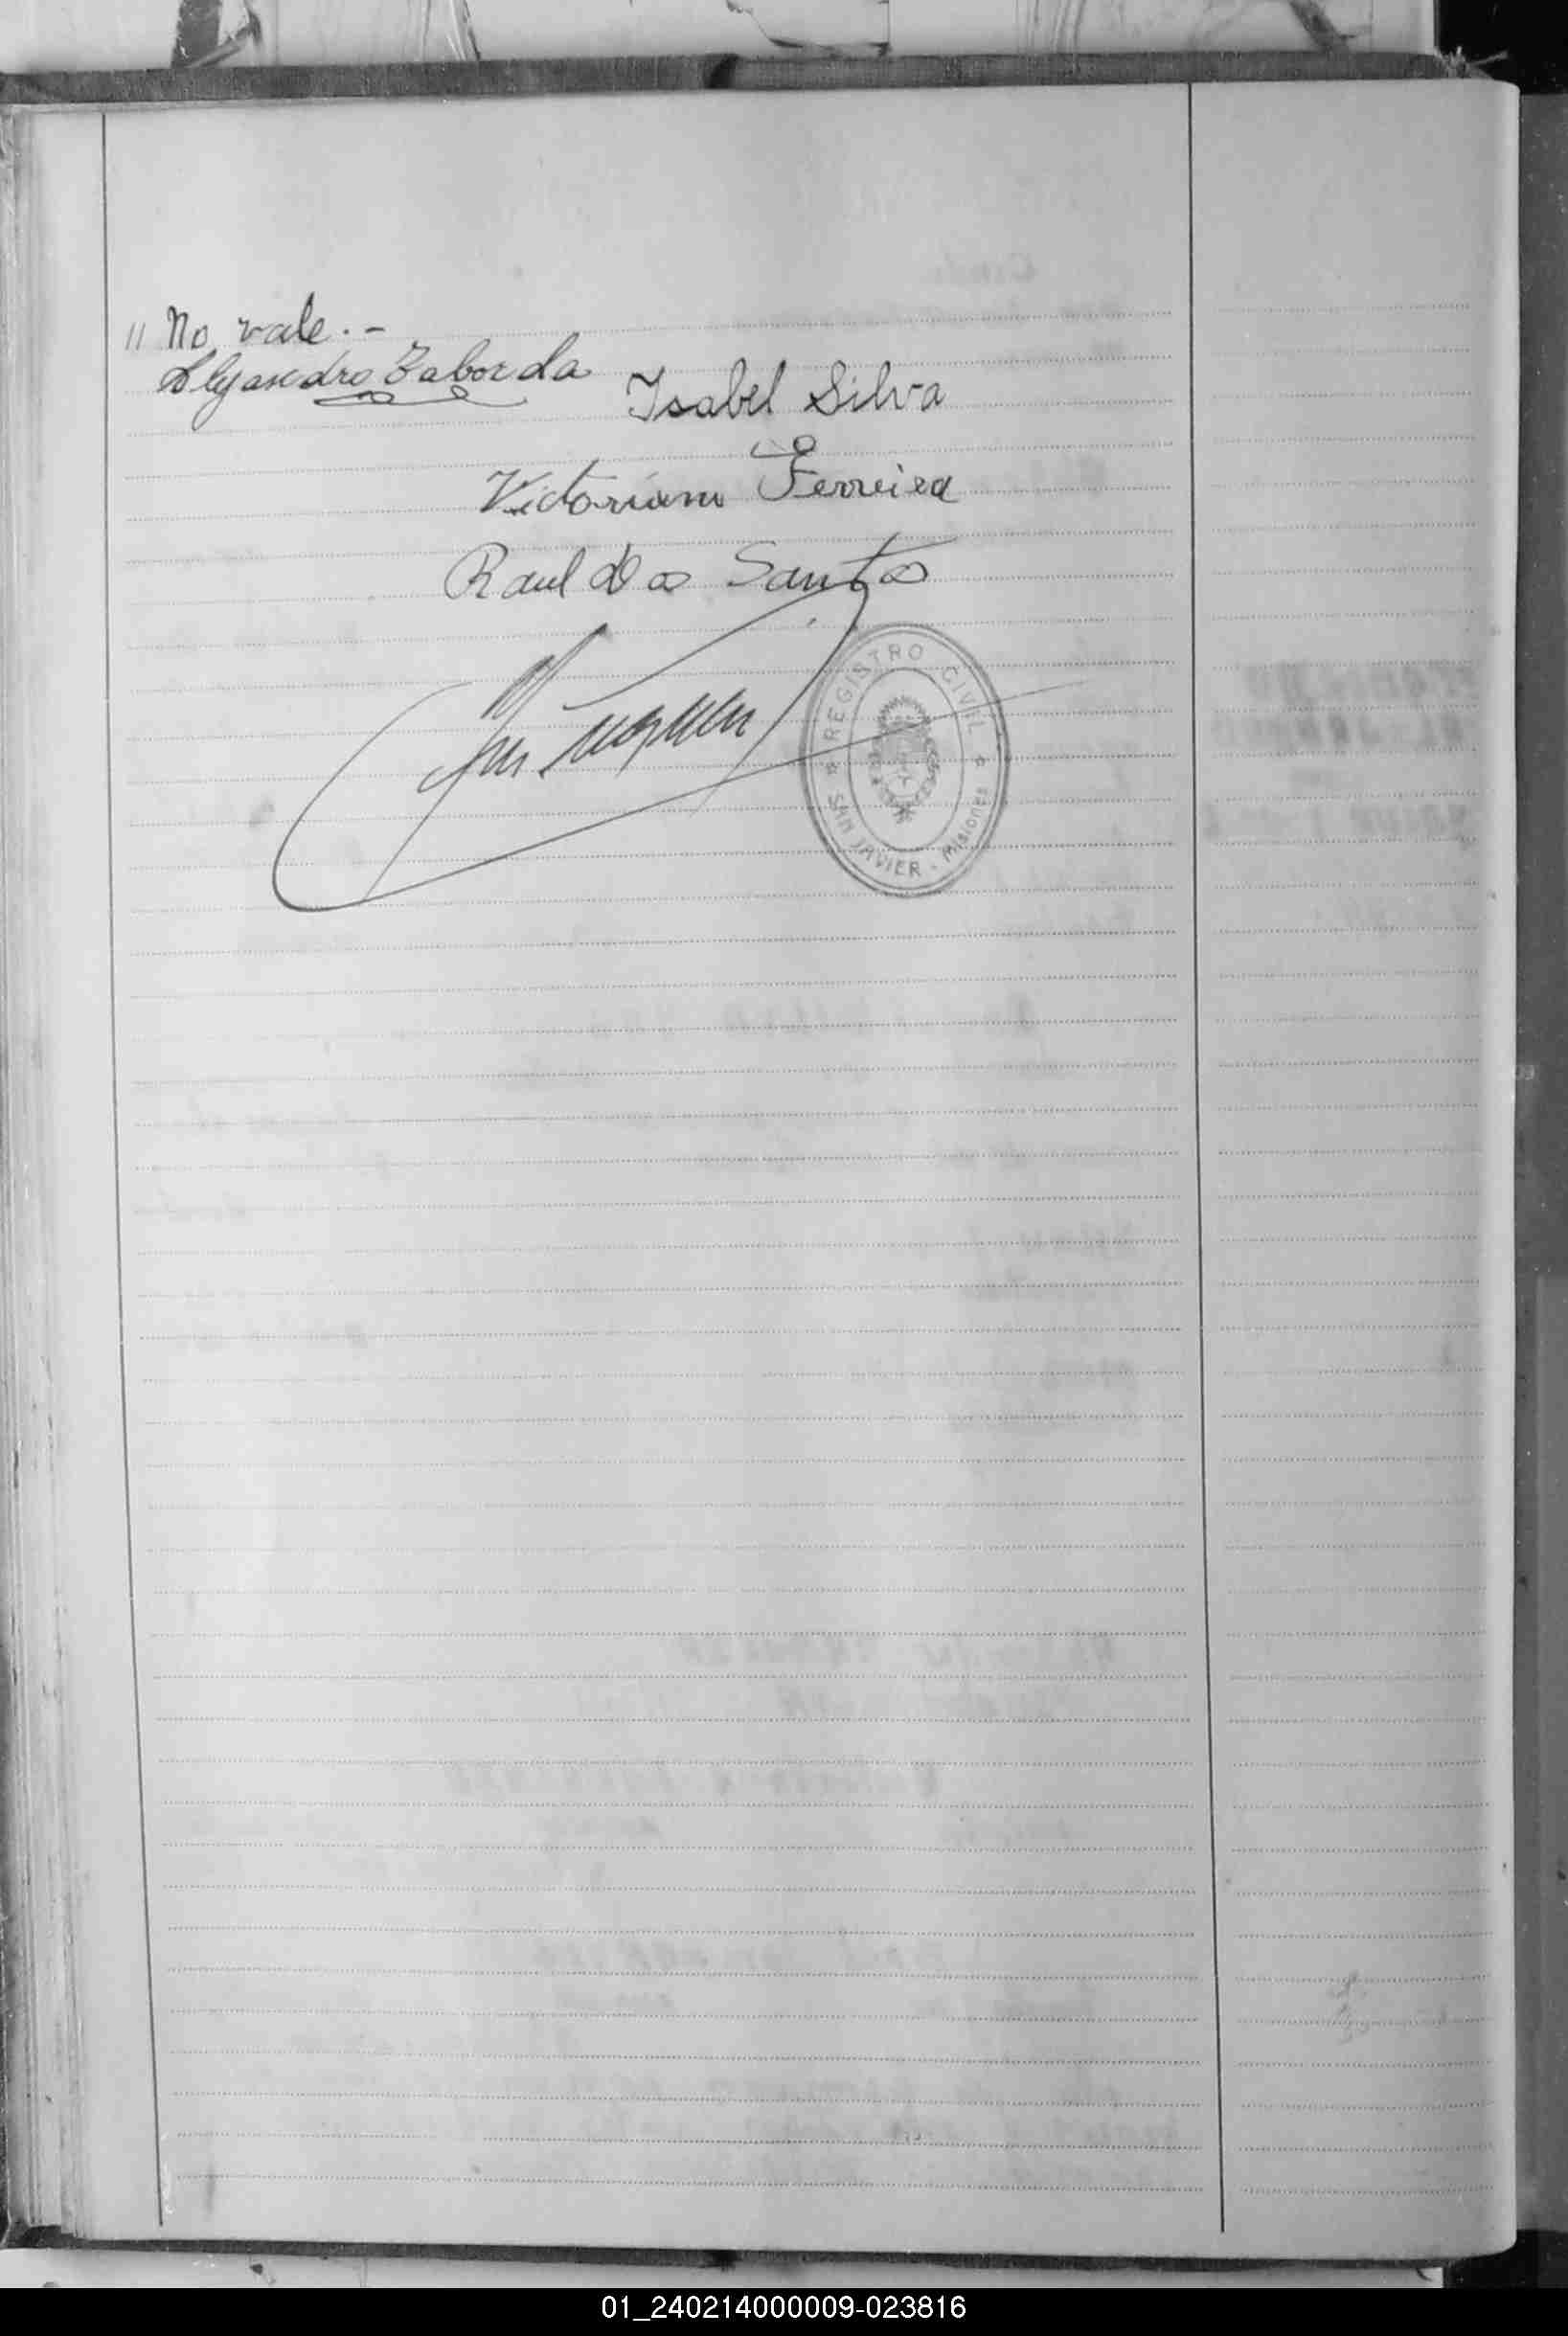 // No vale.-
Alejandro Taborda
Isabel Silva
Victoriano Ferreira
Raul Dos Santos
REGISTRO CIVIL
SAN JAVIER - Misiones
01_240214000009-023816